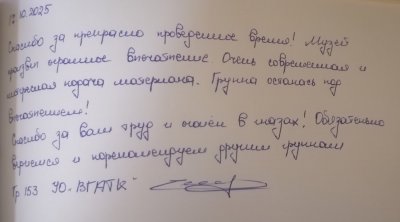 10.2025
Спасибо за прекрасно проведенное время! Музей
произвел огромное впечатление. Очень современная и
интересная подача материала. Группа осталась под
впечатлением!
Спасибо за ваш труд и огонёк в глазах! Обязательно
вернемся и порекомендуем другим группам
Гр 153 УО "ВГАТК"